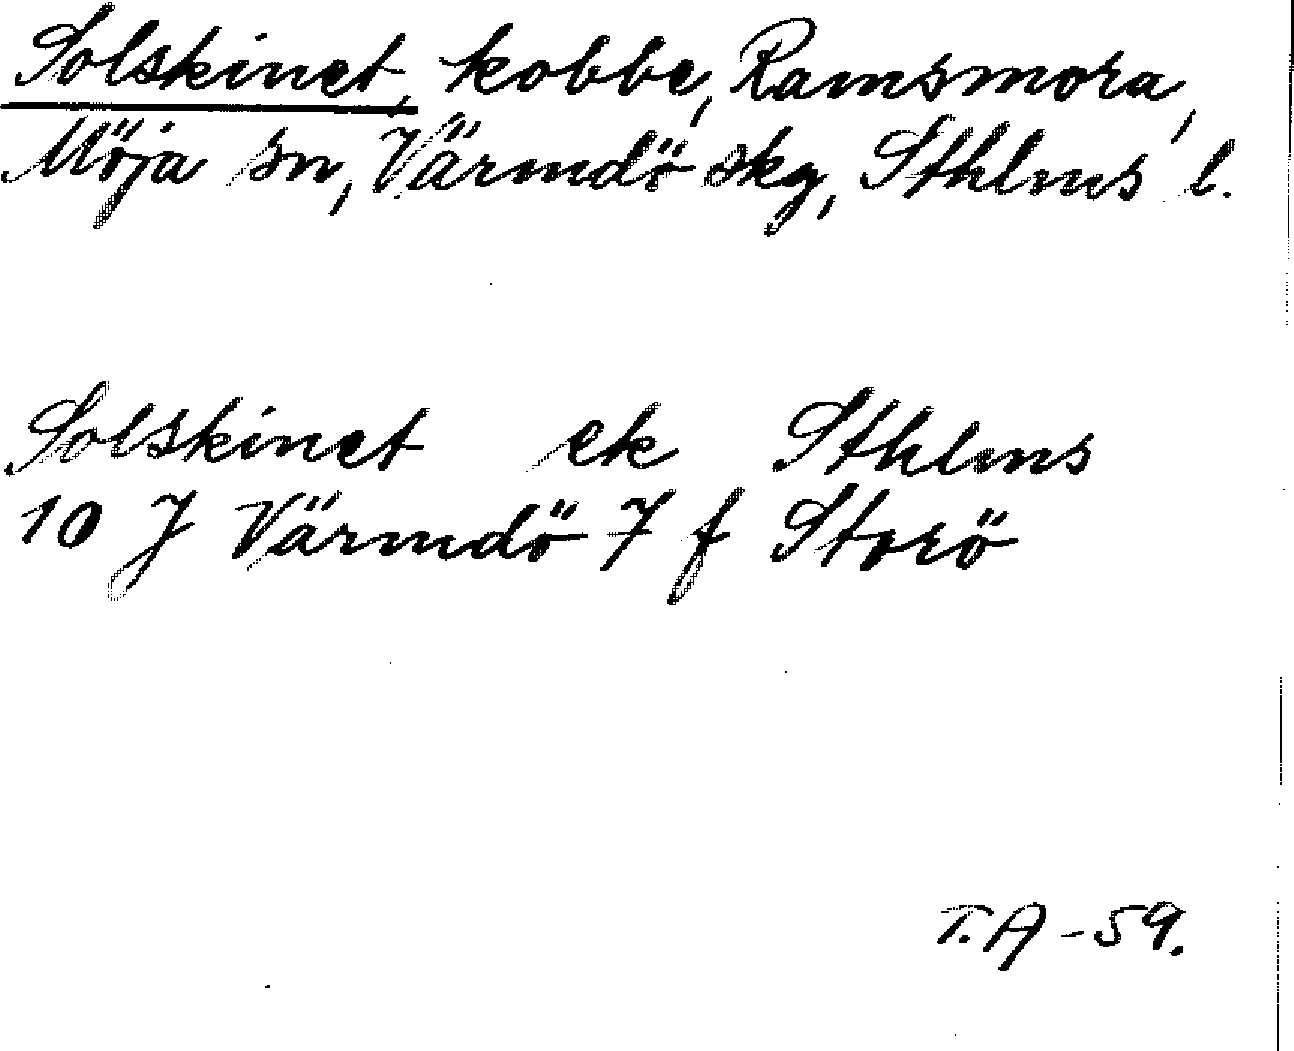 Solskinet, kobbe, Ramsmora,
Möja sn, Värmdö skg, Sthlms l.
Solskinet ek Sthlms
10 J Värmdö 7 f Storö
T.A -59.